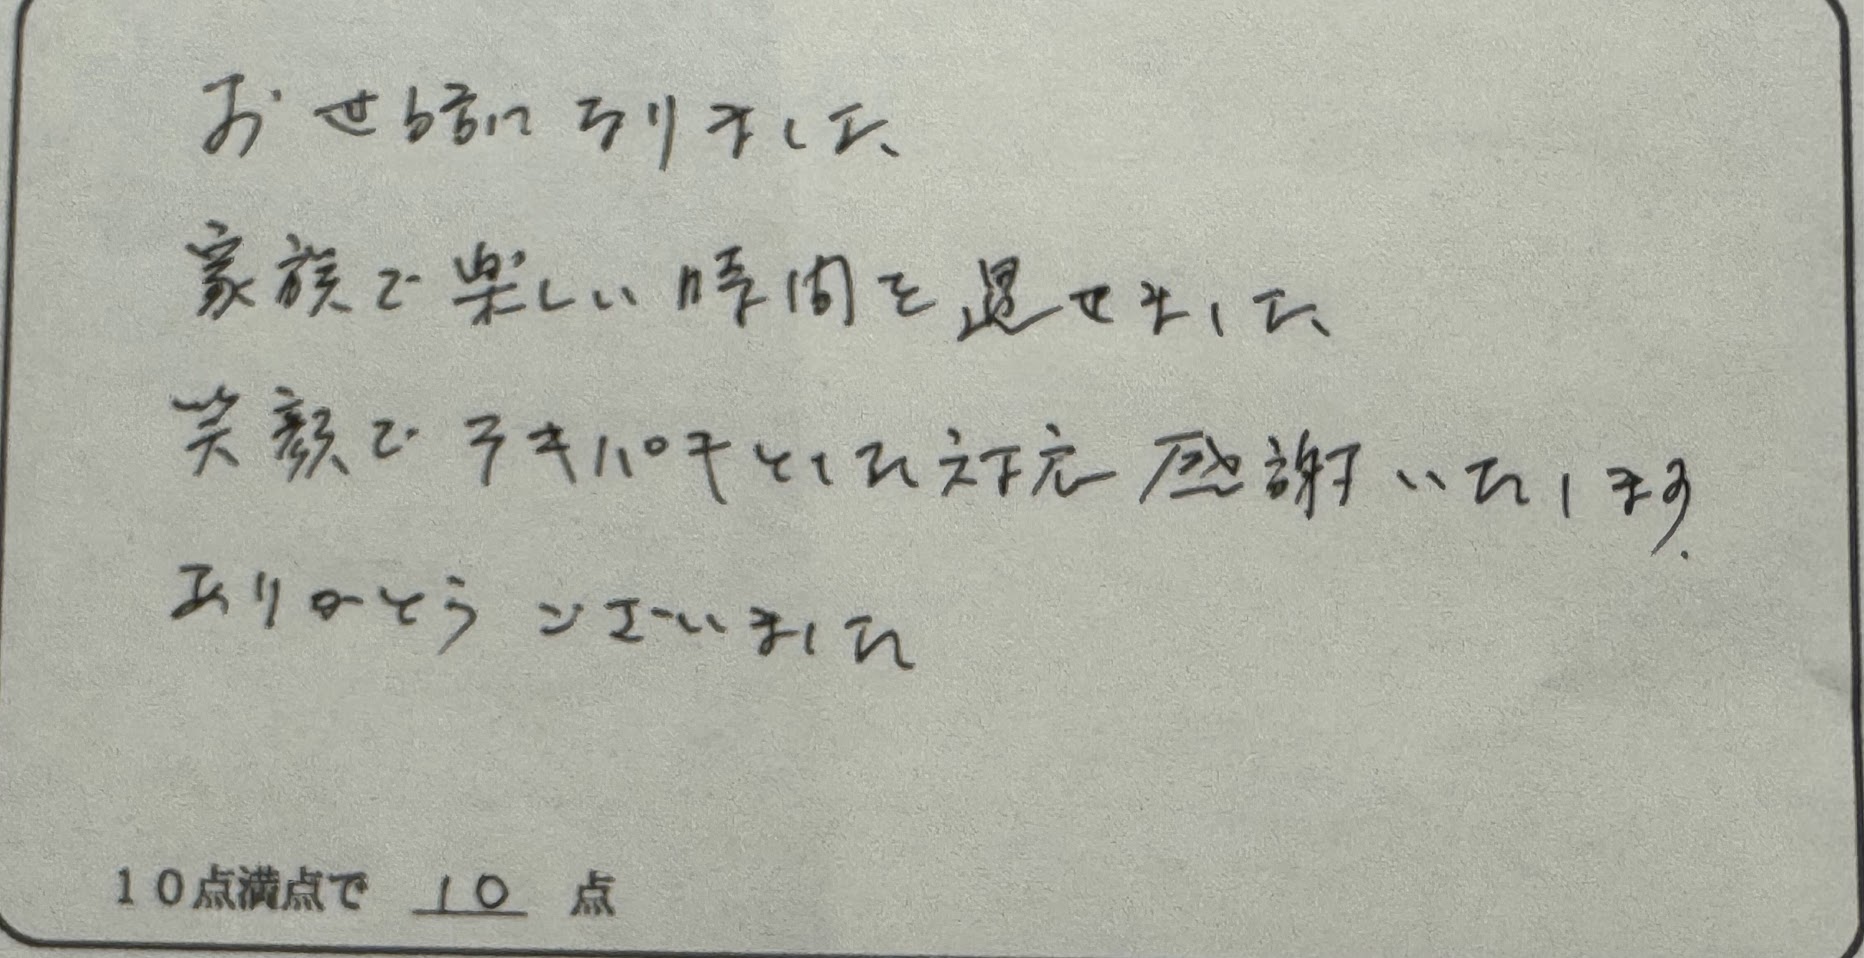 お世話になりました、
家族で楽しい時間を過せました、
笑顔でテキパキとした対応感謝いたします.
ありがとうございました
10点満点で 10 点